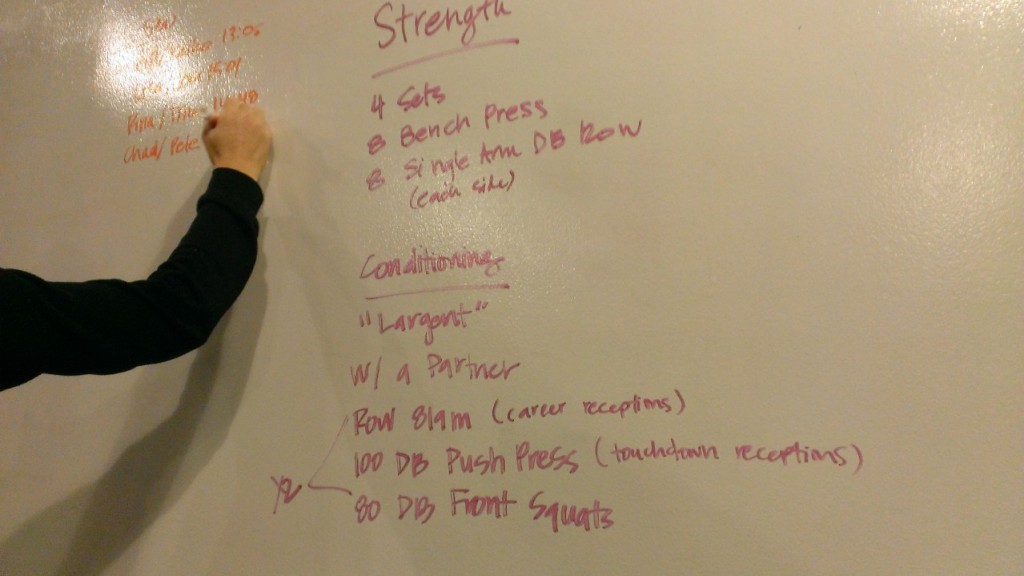 13:05
Chad/Pete
Strength
4 Sets
8 Bench Press
8 Single Arm DB Row
(each side)
Conditioning
"Largent"
W/ a Partner
Row 819m (career receptions)
100 DB Push Press (touchdown receptions)
80 DB Front Squats